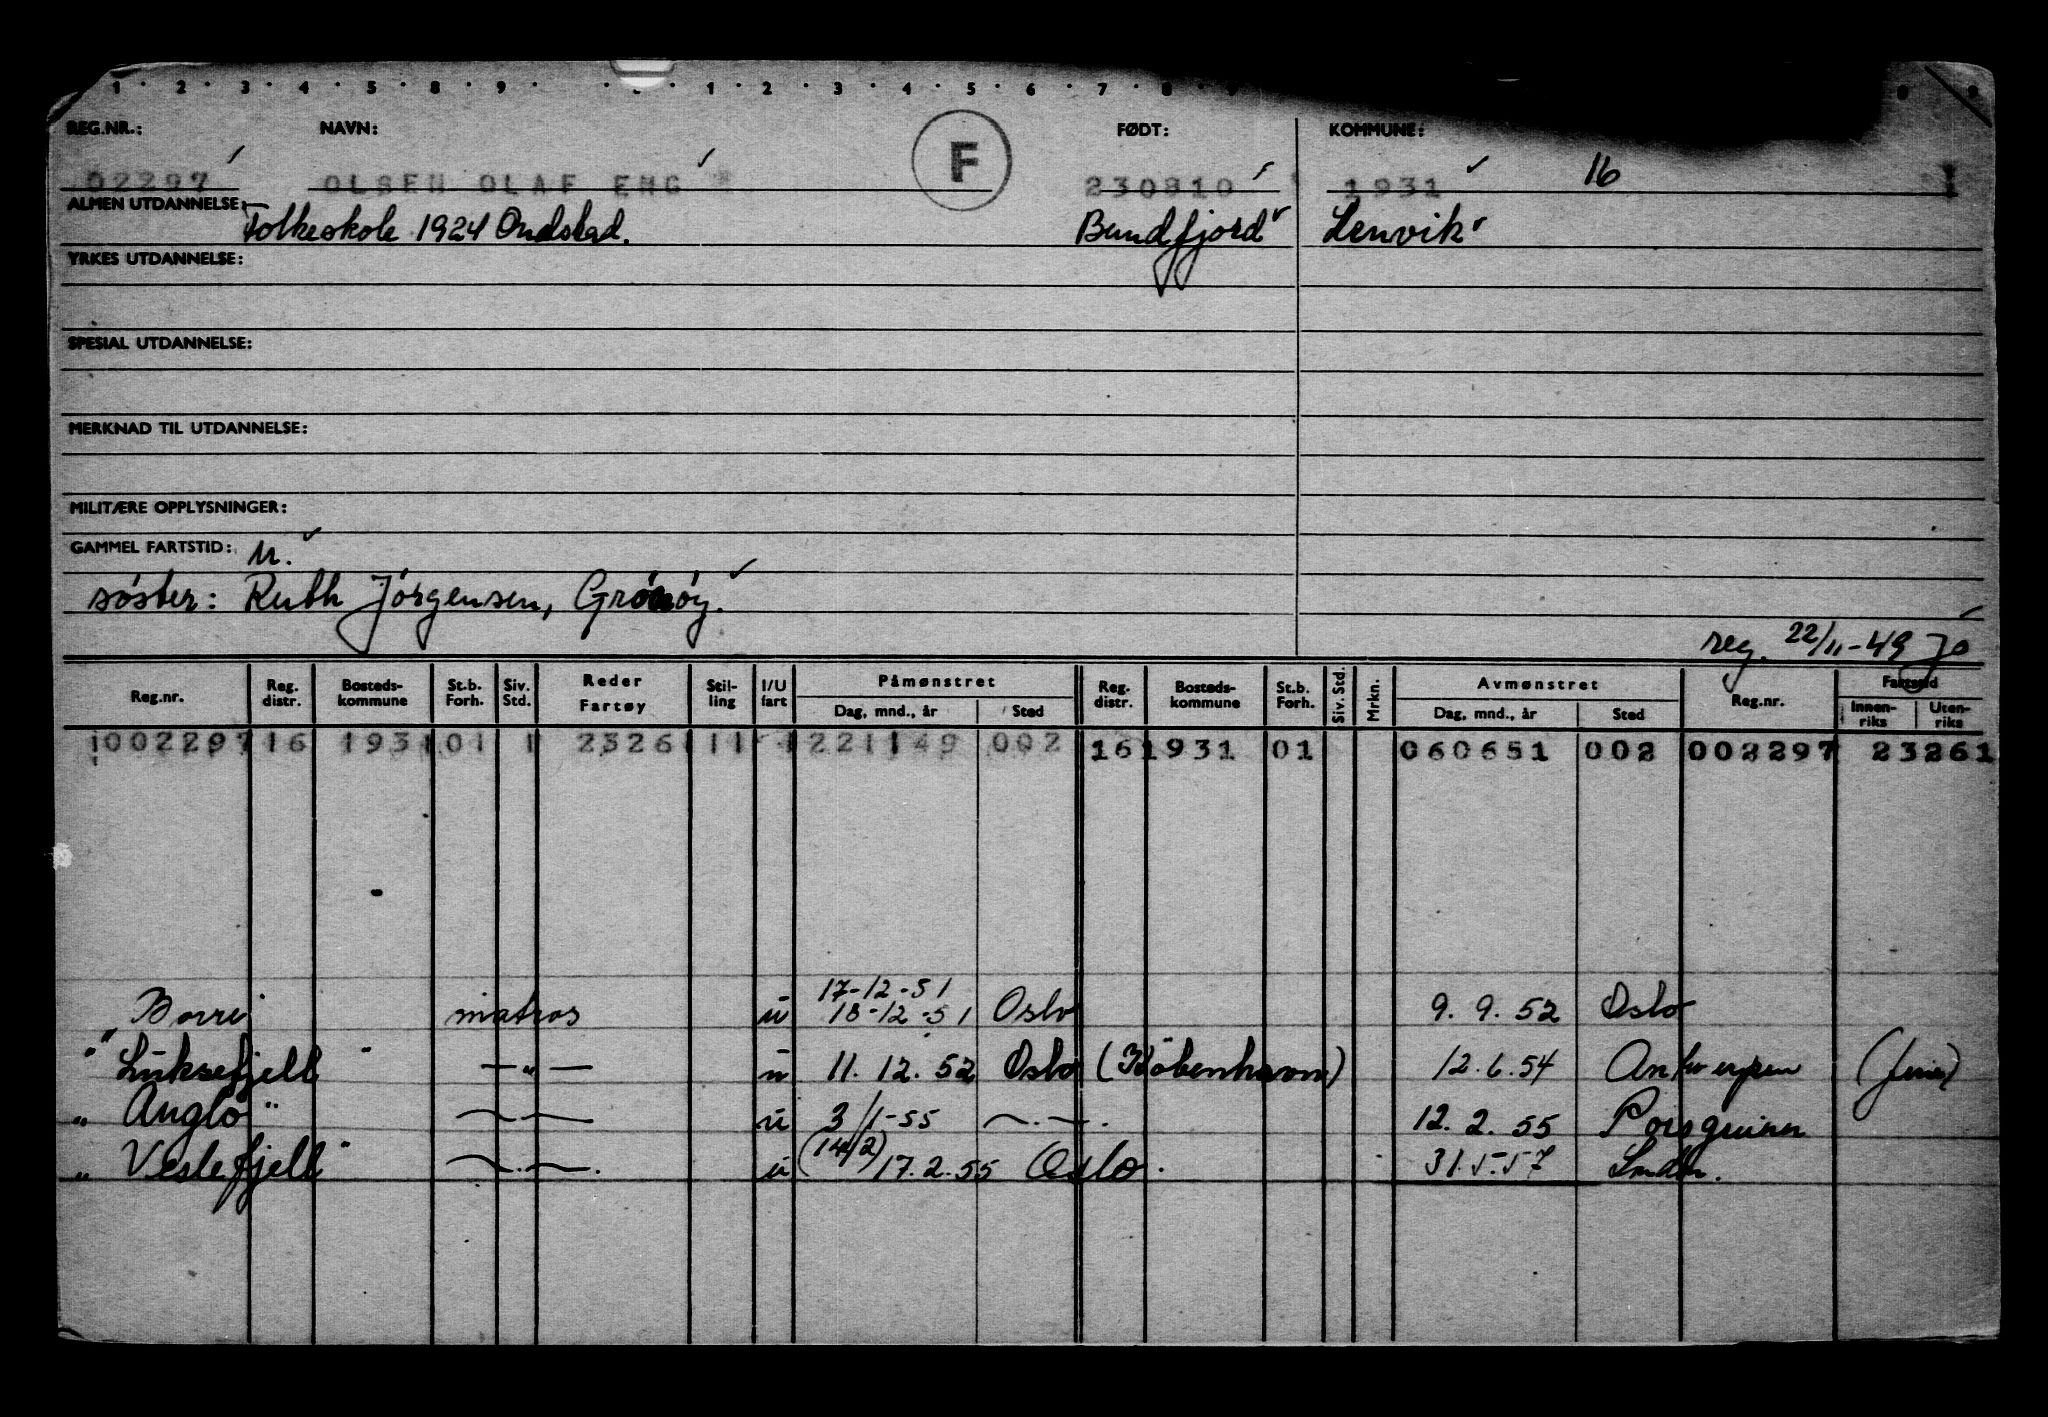 1 · 2 · 3 · 4 · 5 · 8 · 9 · 1 · 2 · 3 · 4 · 5 · 6 · 7 · 8 9
REG.NR.: NAVN: F FØDT: KOMMUNE:
02297 OLSEN OLAF ENG 230810 1931 16 1
ALMEN UTDANNELSE: Folkeskole 1924 Ondstad. Bundfjord Lenvik
YRKES UTDANNELSE:
SPESIAL UTDANNELSE:
MERKNAD TIL UTDANNELSE:
MILITÆRE OPPLYSNINGER:
GAMMEL FARTSTID: u.
søster: Ruth Jørgensen,
reg. 22/11-49 Jo
Reg.nr. Reg. distr. Bosteds-kommune St.b. Forh. Siv. Std. Reder Fartøy Stil-ling I/U fart Påmønstret Dag, mnd., år Sted Reg. distr. Bosteds-kommune St.b. Forh. Siv. Std. Mrkn. Avmønstret Dag, mnd., år Sted Reg.nr. Fartstid Innen-riks Uten-riks
1002297 16 1931 01 1 2326 11 4 221149 002 16 1931 01 060651 002 002297 23261
17-12-51
" Borre matros u 18-12-51 Oslo 9.9.52 Oslo
" Luksefjell " —"— u 11.12.52 Oslo (København) 12.6.54 Antwerpen
" Anglo " —.— u 3/1-55 —.—. 12.2.55 Porsgrunn
" Veslefjell " —.—. u (14/2) 17.2.55 Oslo. 31.5.57